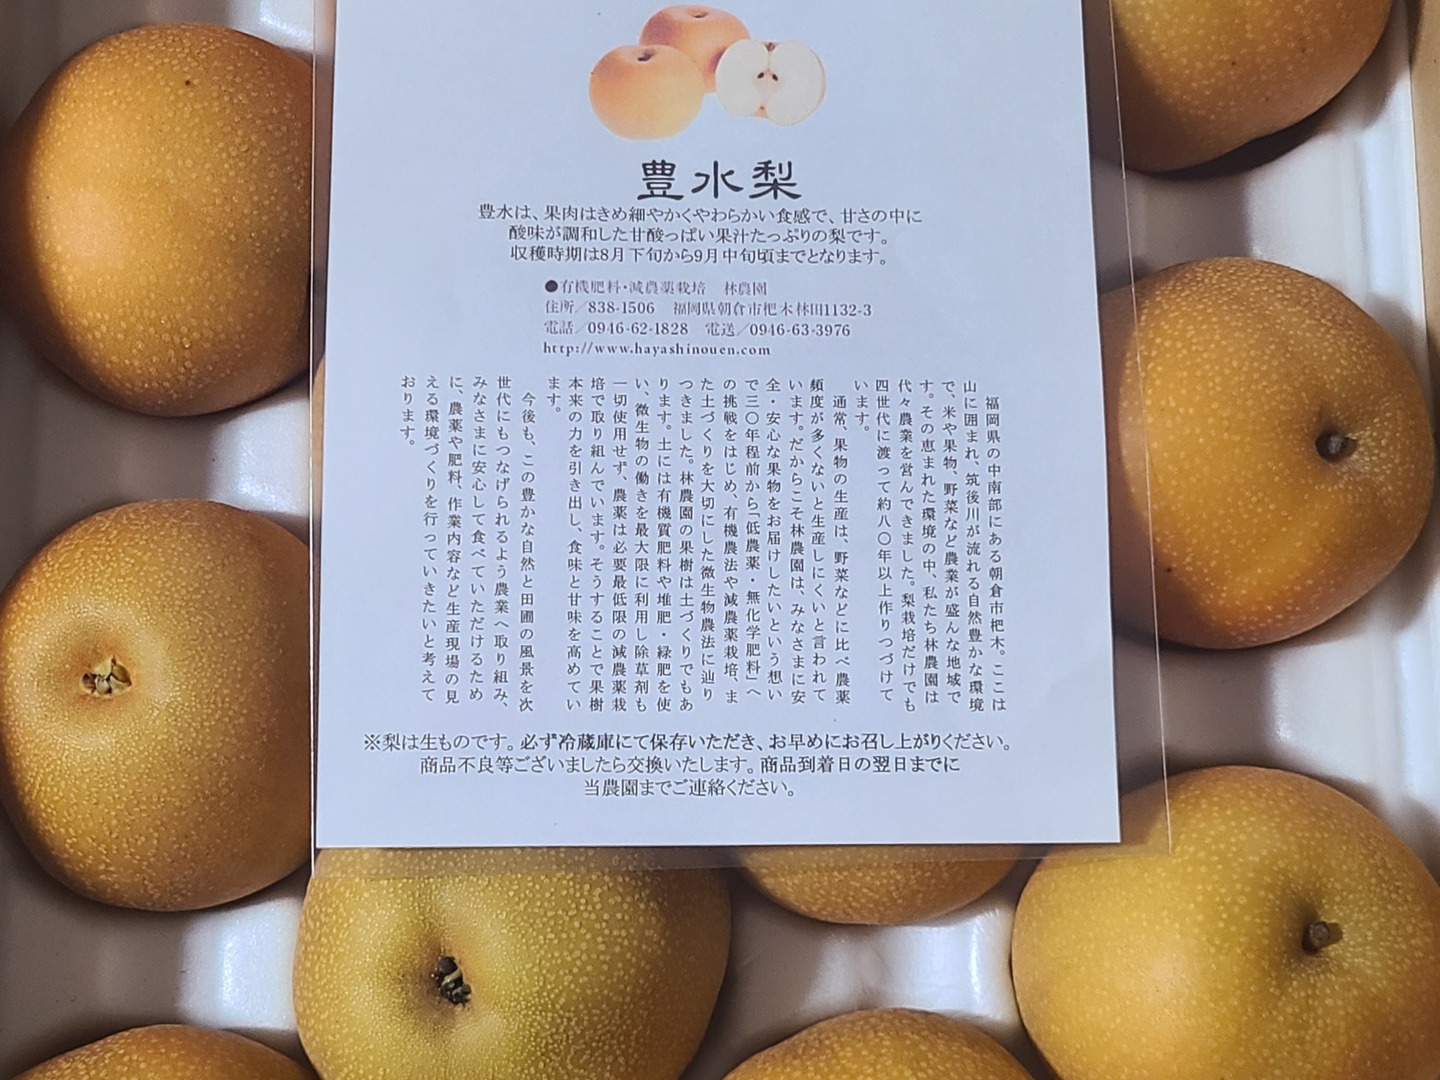 豊水梨
豊水は、果肉はきめ細やかくやわらかい食感で、甘さの中に
酸味が調和した甘酸っぱい果汁たっぷりの梨です。
収穫時期は8月下旬から9月中旬頃までとなります。
●有機肥料・減農薬栽培　林農園
住所／838-1506　福岡県朝倉市杷木林田1132-3
電話／0946-62-1828　電送／0946-63-3976
http://www.hayashinouen.com
福岡県の中南部にある朝倉市杷木。ここは
山に囲まれ、筑後川が流れる自然豊かな環境
で、米や果物、野菜など農業が盛んな地域で
す。その恵まれた環境の中、私たち林農園は
代々農業を営んできました。梨栽培だけでも
四世代に渡って約八〇年以上作りつづけて
います。
通常、果物の生産は、野菜などに比べ農薬
頻度が多くないと生産しにくいと言われて
います。だからこそ林農園は、みなさまに安
全・安心な果物をお届けしたいという想い
で三〇年程前から「低農薬・無化学肥料」へ
の挑戦をはじめ、有機農法や減農薬栽培、ま
た土づくりを大切にした微生物農法に辿り
つきました。林農園の果樹は土づくりでもあ
ります。土には有機質肥料や堆肥・緑肥を使
い、微生物の働きを最大限に利用し除草剤も
一切使用せず、農薬は必要最低限の減農薬栽
培で取り組んでいます。そうすることで果樹
本来の力を引き出し、食味と甘味を高めてい
ます。
今後も、この豊かな自然と田圃の風景を次
世代にもつなげられるよう農業へ取り組み、
みなさまに安心して食べていただけるため
に、農薬や肥料、作業内容など生産現場の見
える環境づくりを行っていきたいと考えて
おります。
※梨は生ものです。必ず冷蔵庫にて保存いただき、お早めにお召し上がりください。
商品不良等ございましたら交換いたします。商品到着日の翌日までに
当農園までご連絡ください。